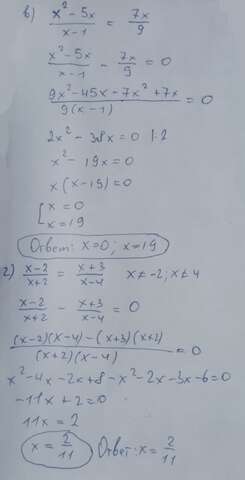 в) x² - 5x / x - 1 = 7x / 9
x² - 5x / x - 1 - 7x / 9 = 0
9x² - 45x - 7x² + 7x / 9(x - 1) = 0
2x² - 38x = 0 |:2
x² - 19x = 0
x(x - 19) = 0
[ x = 0
x = 19
Ответ: x = 0; x = 19
г) x - 2 / x + 2 = x + 3 / x - 4 x ≠ -2; x ≠ 4
x - 2 / x + 2 - x + 3 / x - 4 = 0
(x - 2)(x - 4) - (x + 3)(x + 2) / (x + 2)(x - 4) = 0
x² - 4x - 2x + 8 - x² - 2x - 3x - 6 = 0
-11x + 2 = 0
11x = 2
x = 2 / 11 Ответ: x = 2 / 11